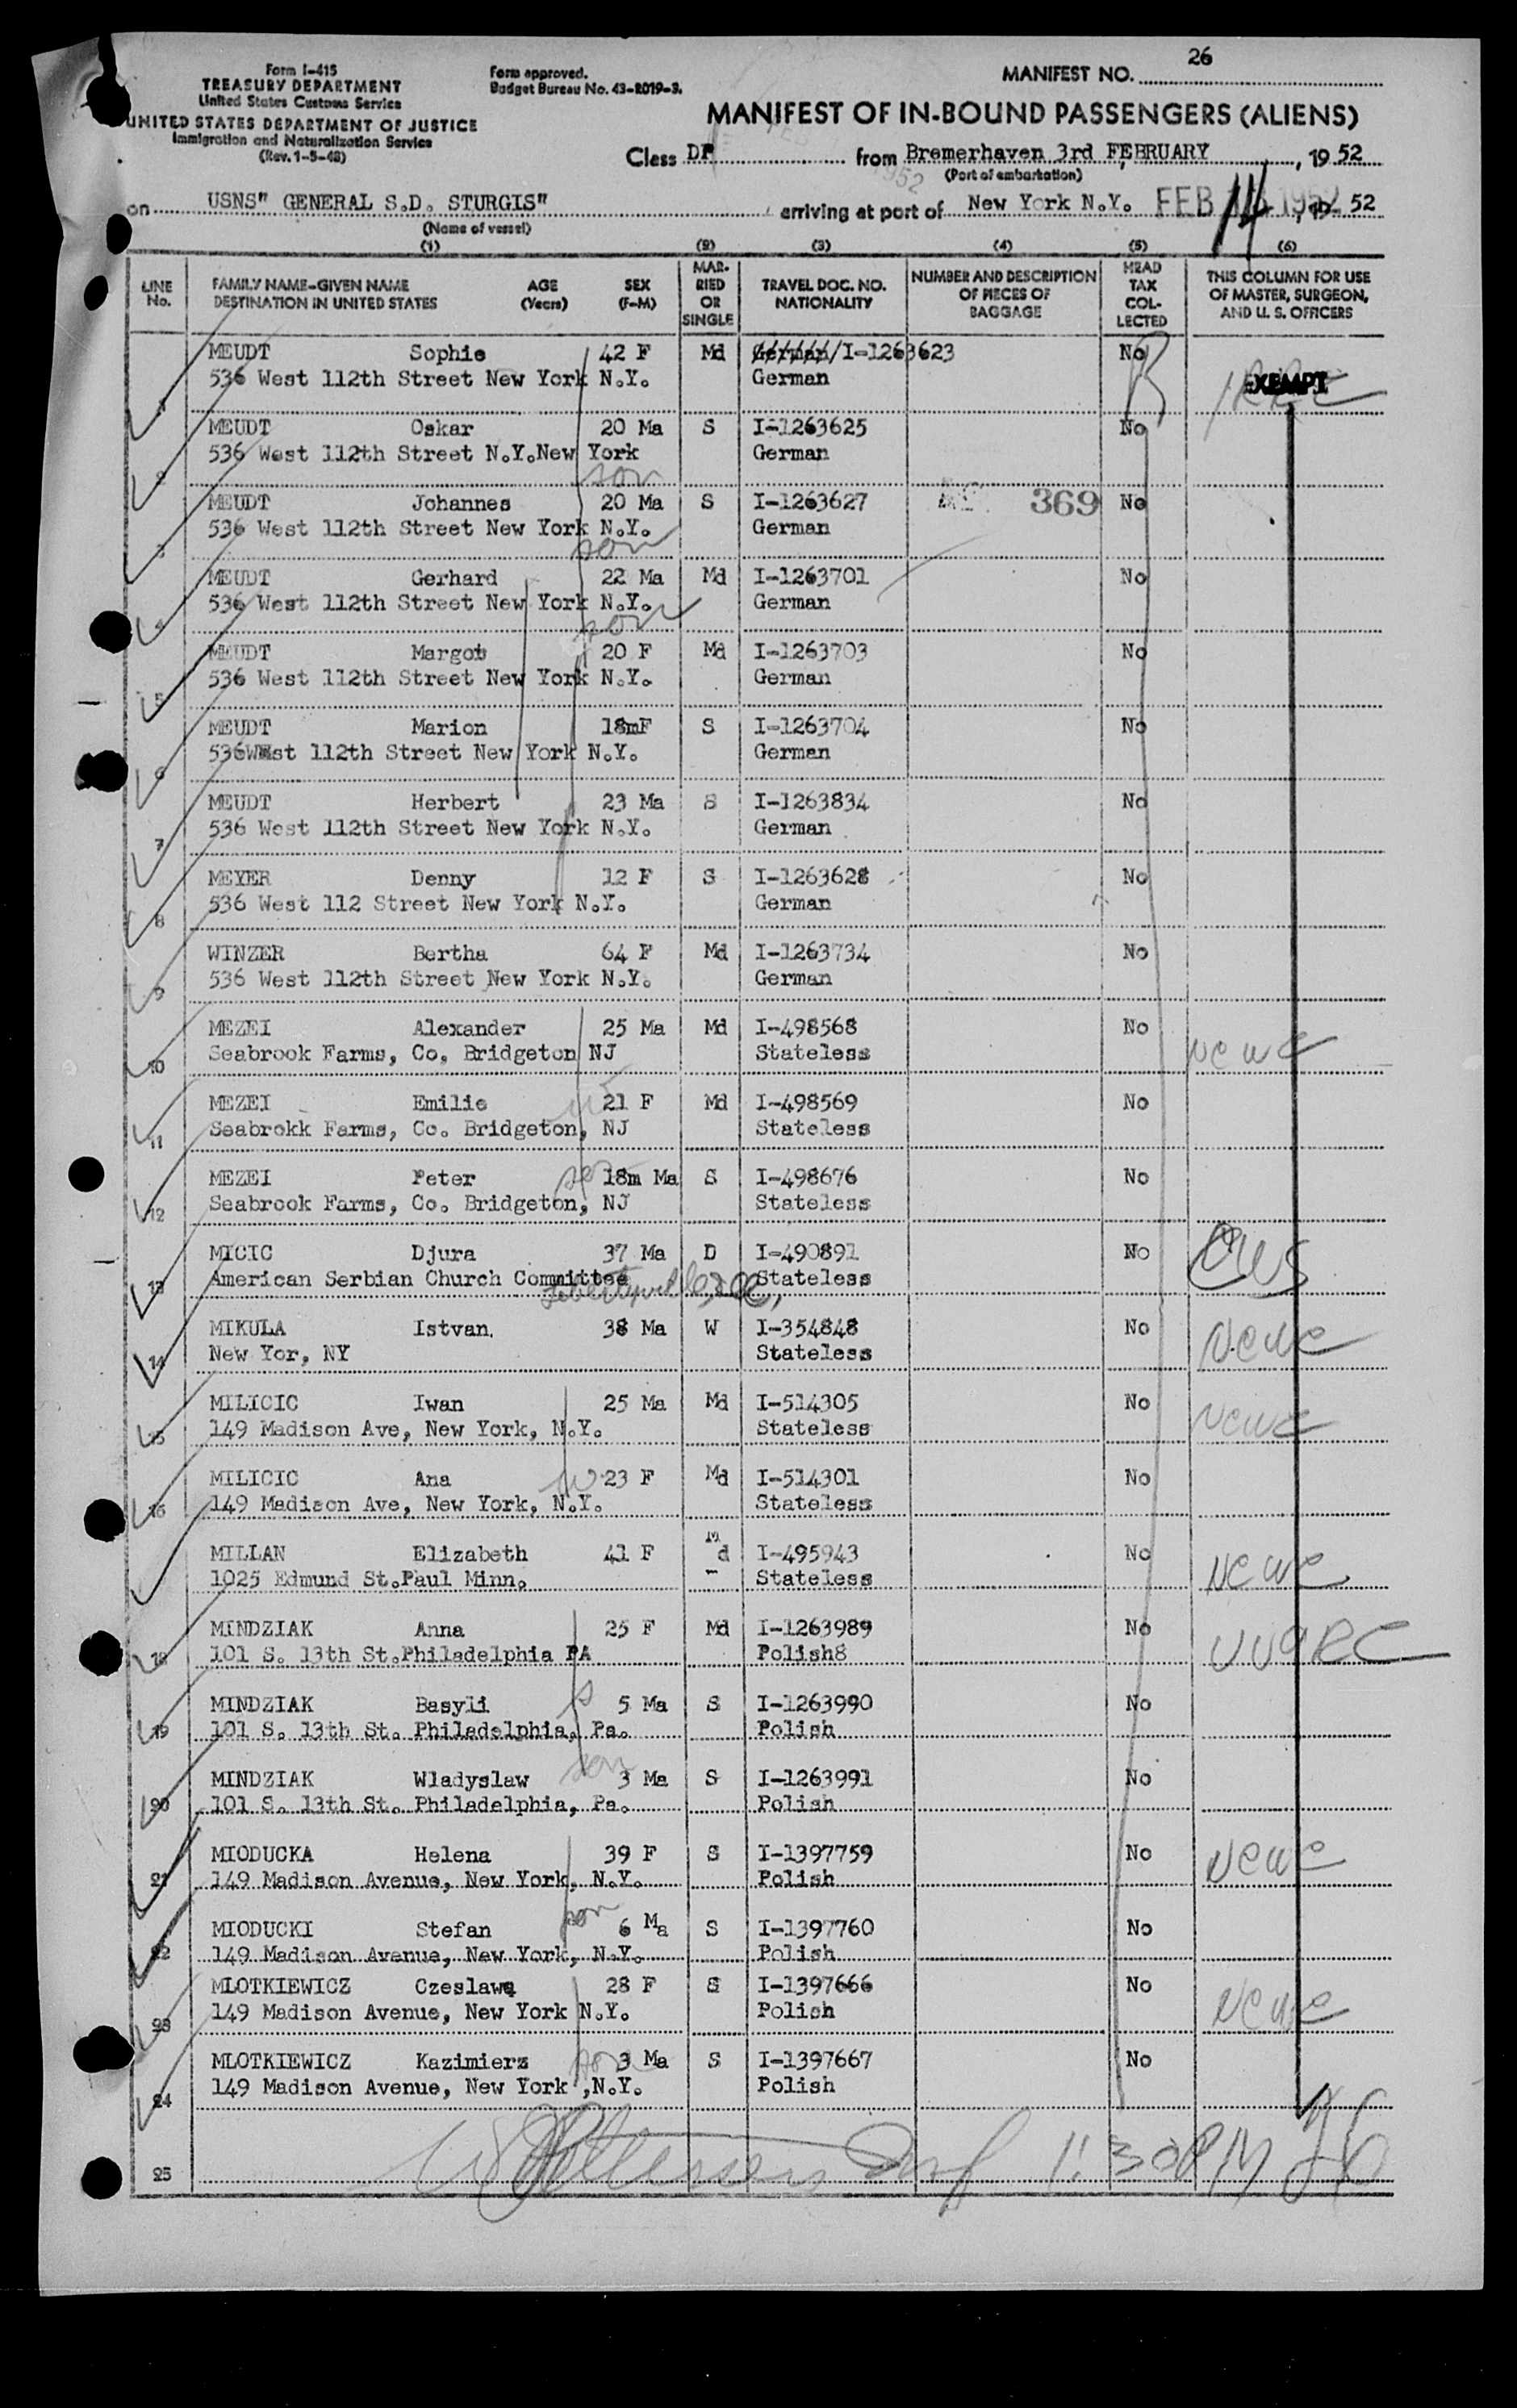 Form I-415
TREASURY DEPARTMENT
United States Customs Service
UNITED STATES DEPARTMENT OF JUSTICE
Immigration and Naturalization Service
(Rev. 1-5-48)
Form approved.
Budget Bureau No. 43-R019-3.
MANIFEST NO. 26
MANIFEST OF IN-BOUND PASSENGERS (ALIENS)
Class DP from Bremerhaven 3rd FEBRUARY, 1952
(Port of embarkation)
on USNS" GENERAL S.D. STURGIS" arriving at port of New York N.Y. FEB 14 1952, 19 52
(Name of vessel)
(1) (2) (3) (4) (5) (6)
LINE No. FAMILY NAME-GIVEN NAME DESTINATION IN UNITED STATES AGE (Years) SEX (F-M) MARRIED OR SINGLE TRAVEL DOC. NO. NATIONALITY NUMBER AND DESCRIPTION OF PIECES OF BAGGAGE HEAD TAX COLLECTED THIS COLUMN FOR USE OF MASTER, SURGEON, AND U. S. OFFICERS
MEUDT Sophie 42 F Md German/I-1263623 No
1 536 West 112th Street New York N.Y. German EXEMPT
MEUDT Oskar 20 Ma S I-1263625 No
2 536 West 112th Street N.Y.New York German
son
MEUDT Johannes 20 Ma S I-1263627 369 No
3 536 West 112th Street New York N.Y. German
son
MEUDT Gerhard 22 Ma Md I-1263701 No
4 536 West 112th Street New York N.Y. German
son
MEUDT Margot 20 F Md I-1263703 No
5 536 West 112th Street New York N.Y. German
MEUDT Marion 18mF S I-1263704 No
6 536West 112th Street New York N.Y. German
MEUDT Herbert 23 Ma S I-1263834 No
7 536 West 112th Street New York N.Y. German
MEYER Denny 12 F S I-1263628 No
8 536 West 112 Street New York N.Y. German
WINZER Bertha 64 F Md I-1263734 No
9 536 West 112th Street New York N.Y. German
MEZEI Alexander 25 Ma Md I-498568 No
10 Seabrook Farms, Co. Bridgeton NJ Stateless NCWC
MEZEI Emilie 21 F Md I-498569 No
11 Seabrokk Farms, Co. Bridgeton, NJ Stateless
MEZEI Peter son 18m Ma S I-498676 No
12 Seabrook Farms, Co. Bridgeton, NJ Stateless
MICIC Djura 37 Ma D I-490891 No CWS
13 American Serbian Church Committee Stateless
Libertyville, Ill,
MIKULA Istvan. 38 Ma W I-354848 No NCWC
14 New Yor, NY Stateless
MILICIC Iwan 25 Ma Md I-514305 No NCWC
15 149 Madison Ave, New York, N.Y. Stateless
MILICIC Ana w 23 F Md I-514301 No
16 149 Madison Ave, New York, N.Y. Stateless
MILLAN Elizabeth 41 F Md I-495943 No NCWC
1025 Edmund St.Paul Minn. Stateless
MINDZIAK Anna 25 F Md I-1263989 No UUARC
18 101 S. 13th St.Philadelphia PA Polish8
MINDZIAK Basyli s 5 Ma S I-1263990 No
19 101 S. 13th St. Philadelphia, Pa. Polish
MINDZIAK Wladyslaw son 3 Ma S I-1263991 No
20 101 S. 13th St. Philadelphia, Pa. Polish
MIODUCKA Helena 39 F S I-1397759 No NCWC
21 149 Madison Avenue, New York, N.Y. Polish
MIODUCKI Stefan son 6 Ma S I-1397760 No
22 149 Madison Avenue, New York, N.Y. Polish
MLOTKIEWICZ Czeslawa 28 F S I-1397666 No
23 149 Madison Avenue, New York N.Y. Polish NCWC
MLOTKIEWICZ Kazimierz son 3 Ma S I-1397667 No
24 149 Madison Avenue, New York ,N.Y. Polish
25 1:30PM